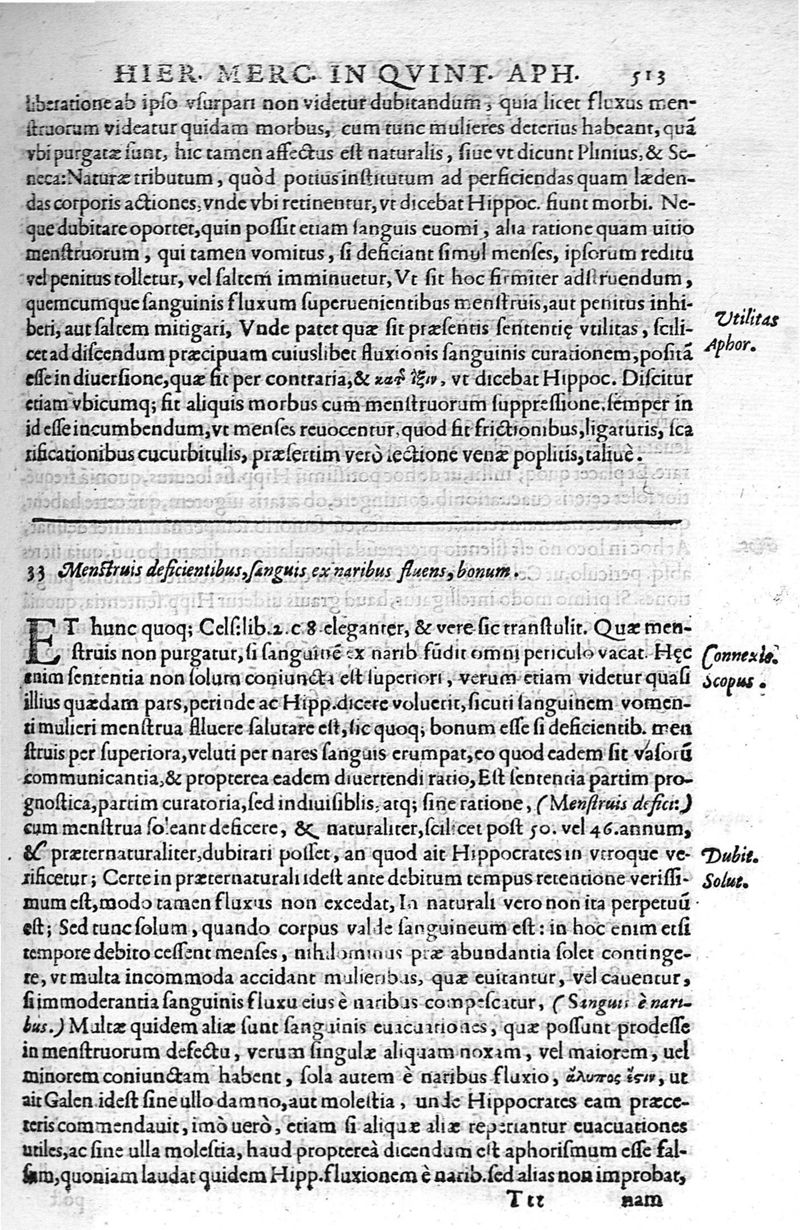 HIER. MERC. IN QVINT. APH. 513
liberatione ab ipso vsurpari non videtur dubitandum, quia licet fluxus men-
struorum videatur quidam morbus, cum tunc mulieres deterius habeant, quā
vbi purgatæ sunt, hic tamen affectus est naturalis, siue vt dicunt Plinius, & Se-
neca: Naturæ tributum, quòd potius institutum ad perficiendas quam læden-
das corporis actiones, vnde vbi retinentur, vt dicebat Hippoc. fiunt morbi. Ne-
que dubitare oportet, quin possit etiam sanguis euomi, alia ratione quam uitio
menstruorum, qui tamen vomitus, si deficiant simul menses, ipsorum reditu
vel penitus tolletur, vel saltem imminuetur, Vt sit hoc firmiter adstruendum,
quemcumque sanguinis fluxum superuenientibus menstruis, aut penitus inhi-
beri, aut saltem mitigari, Vnde patet quæ sit præsentis sententię vtilitas, scili-
cet ad discendum præcipuam cuiuslibet fluxionis sanguinis curationem, positā
esse in diuersione, quæ fit per contraria, & κατ' ἴξιν, vt dicebat Hippoc. Discitur
etiam vbicumq; sit aliquis morbus cum menstruorum suppressione, semper in
id esse incumbendum, vt menses reuocentur, quod fit frictionibus, ligaturis, sca
rificationibus cucurbitulis, præsertim verò sectione venæ poplitis, taliuè.
Utilitas
Aphor.
33 Menstruis deficientibus, sanguis ex naribus fluens, bonum.
ET hunc quoq; Cels. lib. 2. c 8. eleganter, & vere sic transtulit. Quæ men-
struis non purgatur, si sanguinē ex narib fūdit omni periculo vacat. Hęc
enim sententia non solum coniuncta est superiori, verum etiam videtur quasi
illius quædam pars, perinde ac Hipp. dicere voluerit, sicuti sanguinem vomen-
ti mulieri menstrua fluere salutare est, sic quoq; bonum esse si deficientib. men
struis per superiora, veluti per nares sanguis erumpat, eo quod eadem sit vasorū
communicantia, & propterea eadem diuertendi ratio, Est sententia partim pro-
gnostica, partim curatoria, sed indiuisiblis, atq; sine ratione, (Menstruis defici:)
cum menstrua soleant deficere, & naturaliter, scilicet post 50. vel 46. annum,
& præternaturaliter, dubitari posset, an quod ait Hippocrates in vtroque ve-
rificetur; Certe in præternaturali idest ante debitum tempus retentione verissi-
mum est, modo tamen fluxus non excedat, In naturali vero non ita perpetuū
est; Sed tunc solum, quando corpus valde sanguineum est: in hoc enim etsi
tempore debito cessent menses, nihilominus præ abundantia solet continge-
re, vt multa incommoda accidant mulieribus, quæ euitantur, vel cauentur,
si immoderantia sanguinis fluxu eius è naribus compescatur, (Sanguis è nari-
bus.) Multæ quidem aliæ sunt sanguinis euacuationes, quæ possunt prodesse
in menstruorum defectu, verum singulæ aliquam noxam, vel maiorem, uel
minorem coniunctam habent, sola autem è naribus fluxio, ἄλυπος ἐστιν, ut
ait Galen. idest sine ullo damno, aut molestia, unde Hippocrates eam præce-
teris commendauit, imò uerò, etiam si aliquæ aliæ reperiantur euacuationes
utiles, ac sine ulla molestia, haud proptereà dicendum est aphorismum esse fal-
sum, quoniam laudat quidem Hipp. fluxionem è narib. sed alias non improbat,
Ttt nam
Connexio.
Scopus.
Dubit.
Solut.